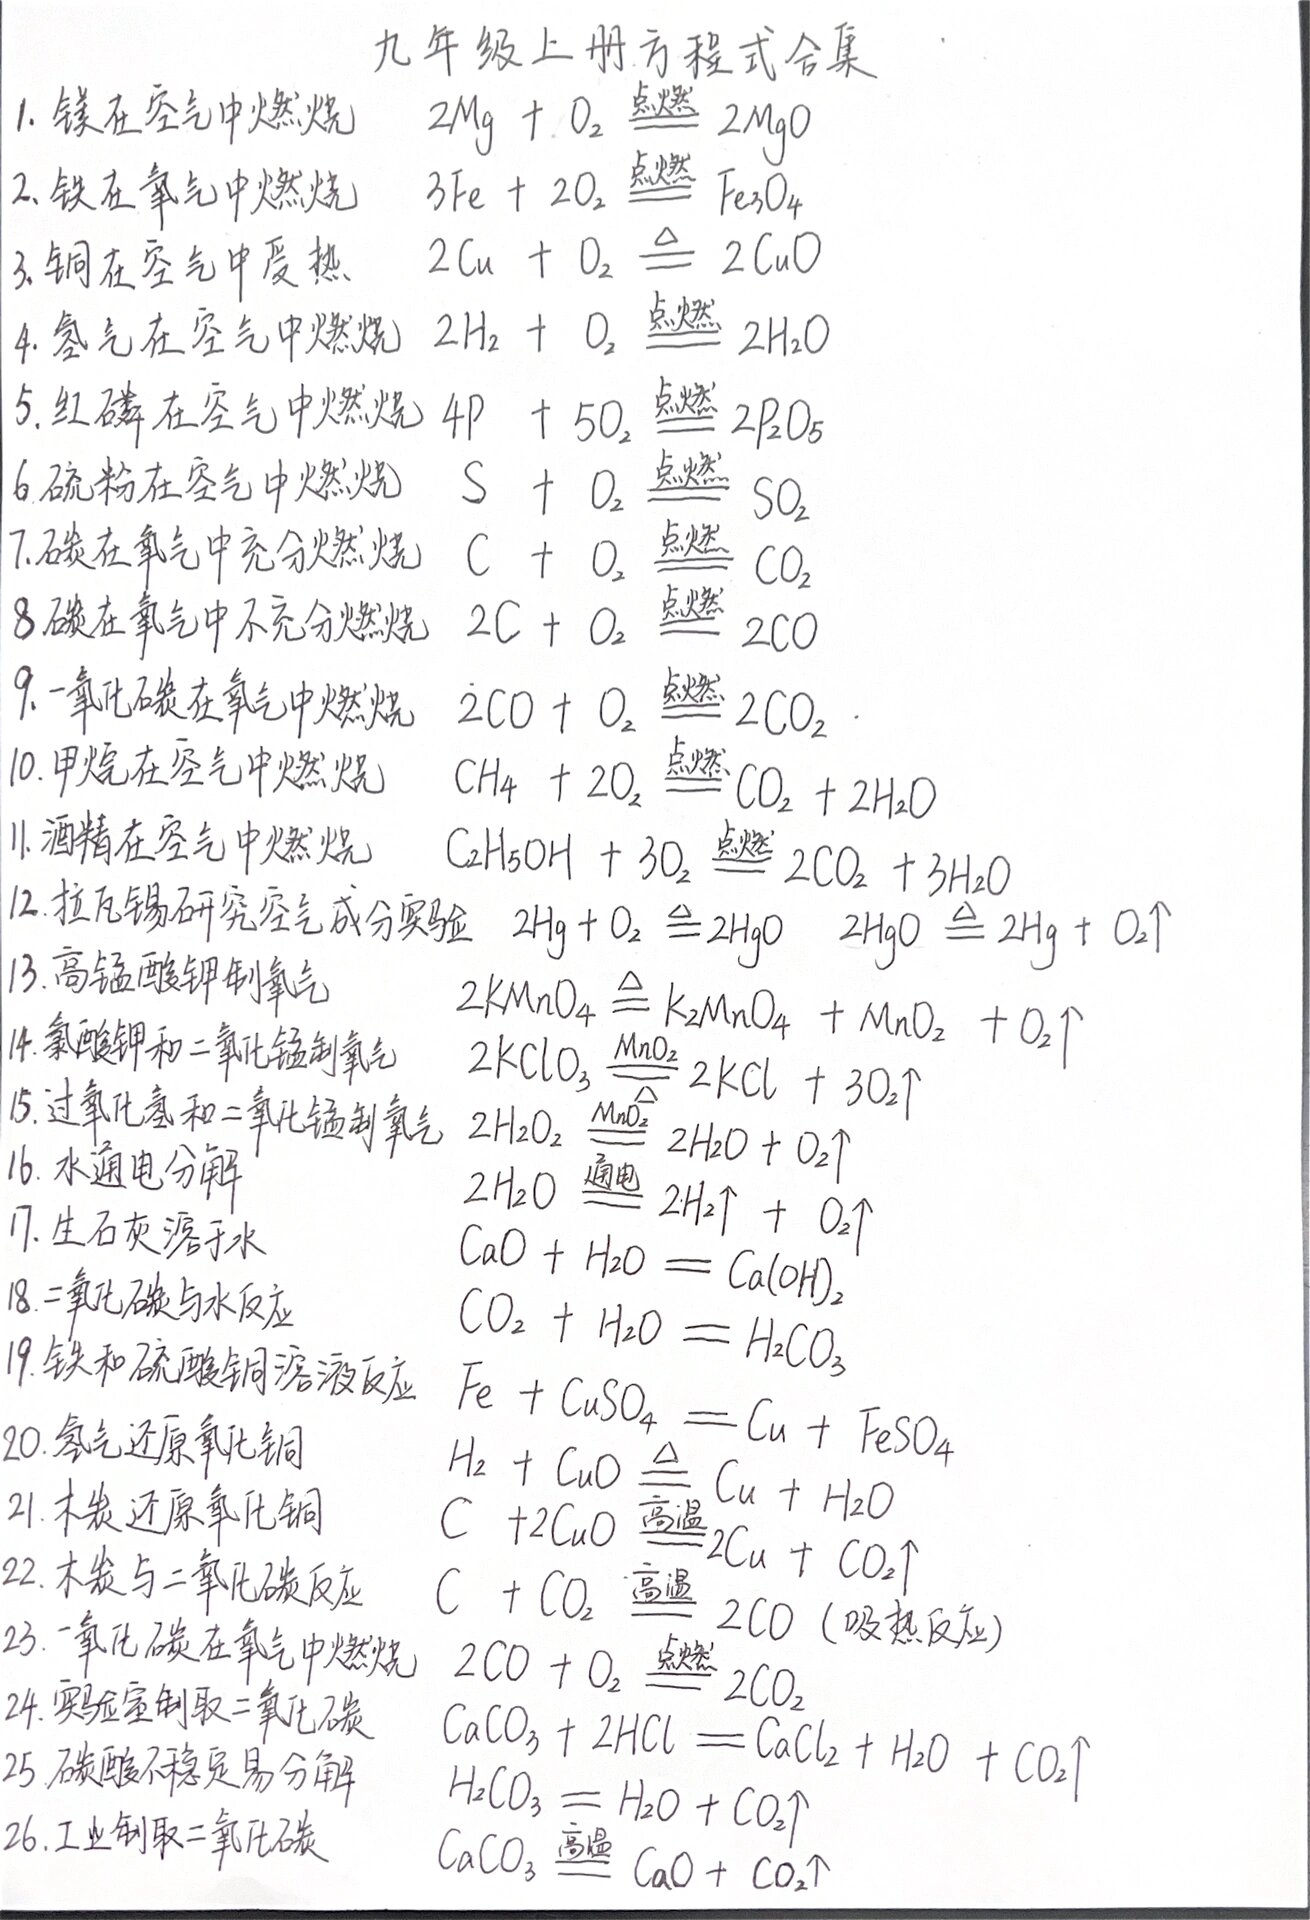 九年级上册方程式合集
1. 镁在空气中燃烧 2Mg + O₂ 点燃═ 2MgO
2. 铁在氧气中燃烧 3Fe + 2O₂ 点燃═ Fe₃O₄
3. 铜在空气中受热 2Cu + O₂ △═ 2CuO
4. 氢气在空气中燃烧 2H₂ + O₂ 点燃═ 2H₂O
5. 红磷在空气中燃烧 4P + 5O₂ 点燃═ 2P₂O₅
6. 硫粉在空气中燃烧 S + O₂ 点燃═ SO₂
7. 碳在氧气中充分燃烧 C + O₂ 点燃═ CO₂
8. 碳在氧气中不充分燃烧 2C + O₂ 点燃═ 2CO
9. 一氧化碳在氧气中燃烧 2CO + O₂ 点燃═ 2CO₂
10. 甲烷在空气中燃烧 CH₄ + 2O₂ 点燃═ CO₂ + 2H₂O
11. 酒精在空气中燃烧 C₂H₅OH + 3O₂ 点燃═ 2CO₂ + 3H₂O
12. 拉瓦锡研究空气成分实验 2Hg + O₂ △═ 2HgO 2HgO △═ 2Hg + O₂↑
13. 高锰酸钾制氧气 2KMnO₄ △═ K₂MnO₄ + MnO₂ + O₂↑
14. 氯酸钾和二氧化锰制氧气 2KClO₃ MnO₂═△ 2KCl + 3O₂↑
15. 过氧化氢和二氧化锰制氧气 2H₂O₂ MnO₂═ 2H₂O + O₂↑
16. 水通电分解 2H₂O 通电═ 2H₂↑ + O₂↑
17. 生石灰溶于水 CaO + H₂O ═ Ca(OH)₂
18. 二氧化碳与水反应 CO₂ + H₂O ═ H₂CO₃
19. 铁和硫酸铜溶液反应 Fe + CuSO₄ ═ Cu + FeSO₄
20. 氢气还原氧化铜 H₂ + CuO △═ Cu + H₂O
21. 木炭还原氧化铜 C + 2CuO 高温═ 2Cu + CO₂↑
22. 木炭与二氧化碳反应 C + CO₂ 高温═ 2CO (吸热反应)
23. 一氧化碳在氧气中燃烧 2CO + O₂ 点燃═ 2CO₂
24. 实验室制取二氧化碳 CaCO₃ + 2HCl ═ CaCl₂ + H₂O + CO₂↑
25. 碳酸不稳定易分解 H₂CO₃ ═ H₂O + CO₂↑
26. 工业制取二氧化碳 CaCO₃ 高温═ CaO + CO₂↑